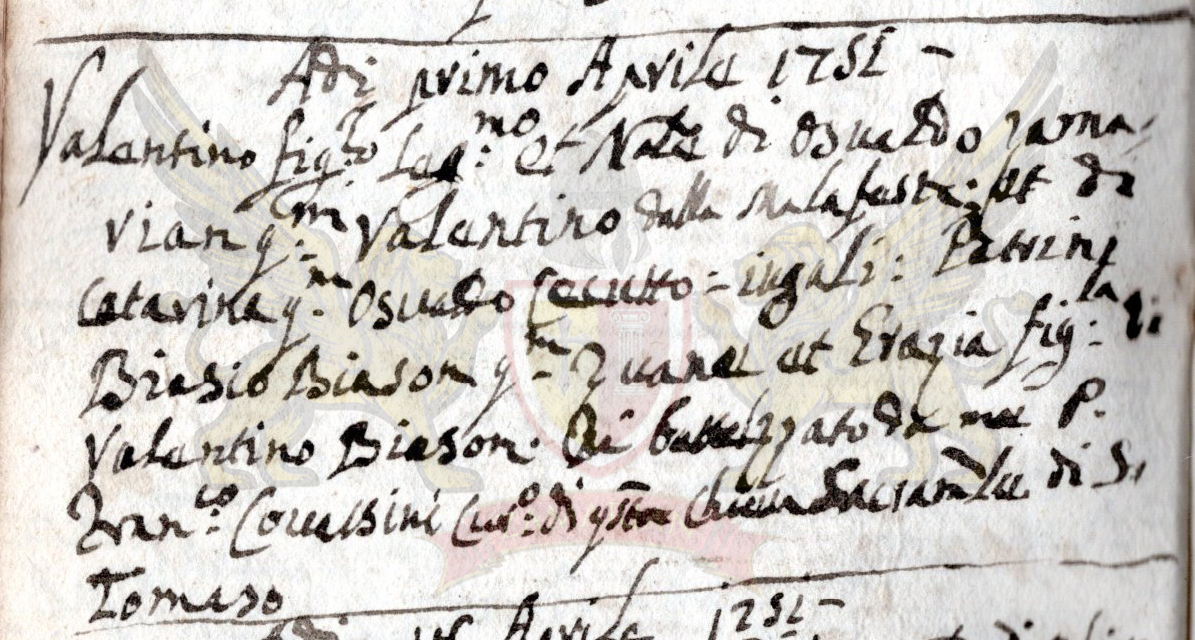 Adi primo Aprile 1751
Valentino fig:lo Leg:mo et Nale di Osualdo Zarna-
vian q:m Valentino dalla Malafesta: et di
Catarina q:m Osualdo Cecutto = iugali: Patrini
Biasio Biason q:m Zuane et Grazia fig:la di
Valentino Biason: Fu battezzato da me P.
Fran:co Corualsini Cur:o di q̃sta Chiesa Sacramãle di S.
Tomaso
Aprile 1751